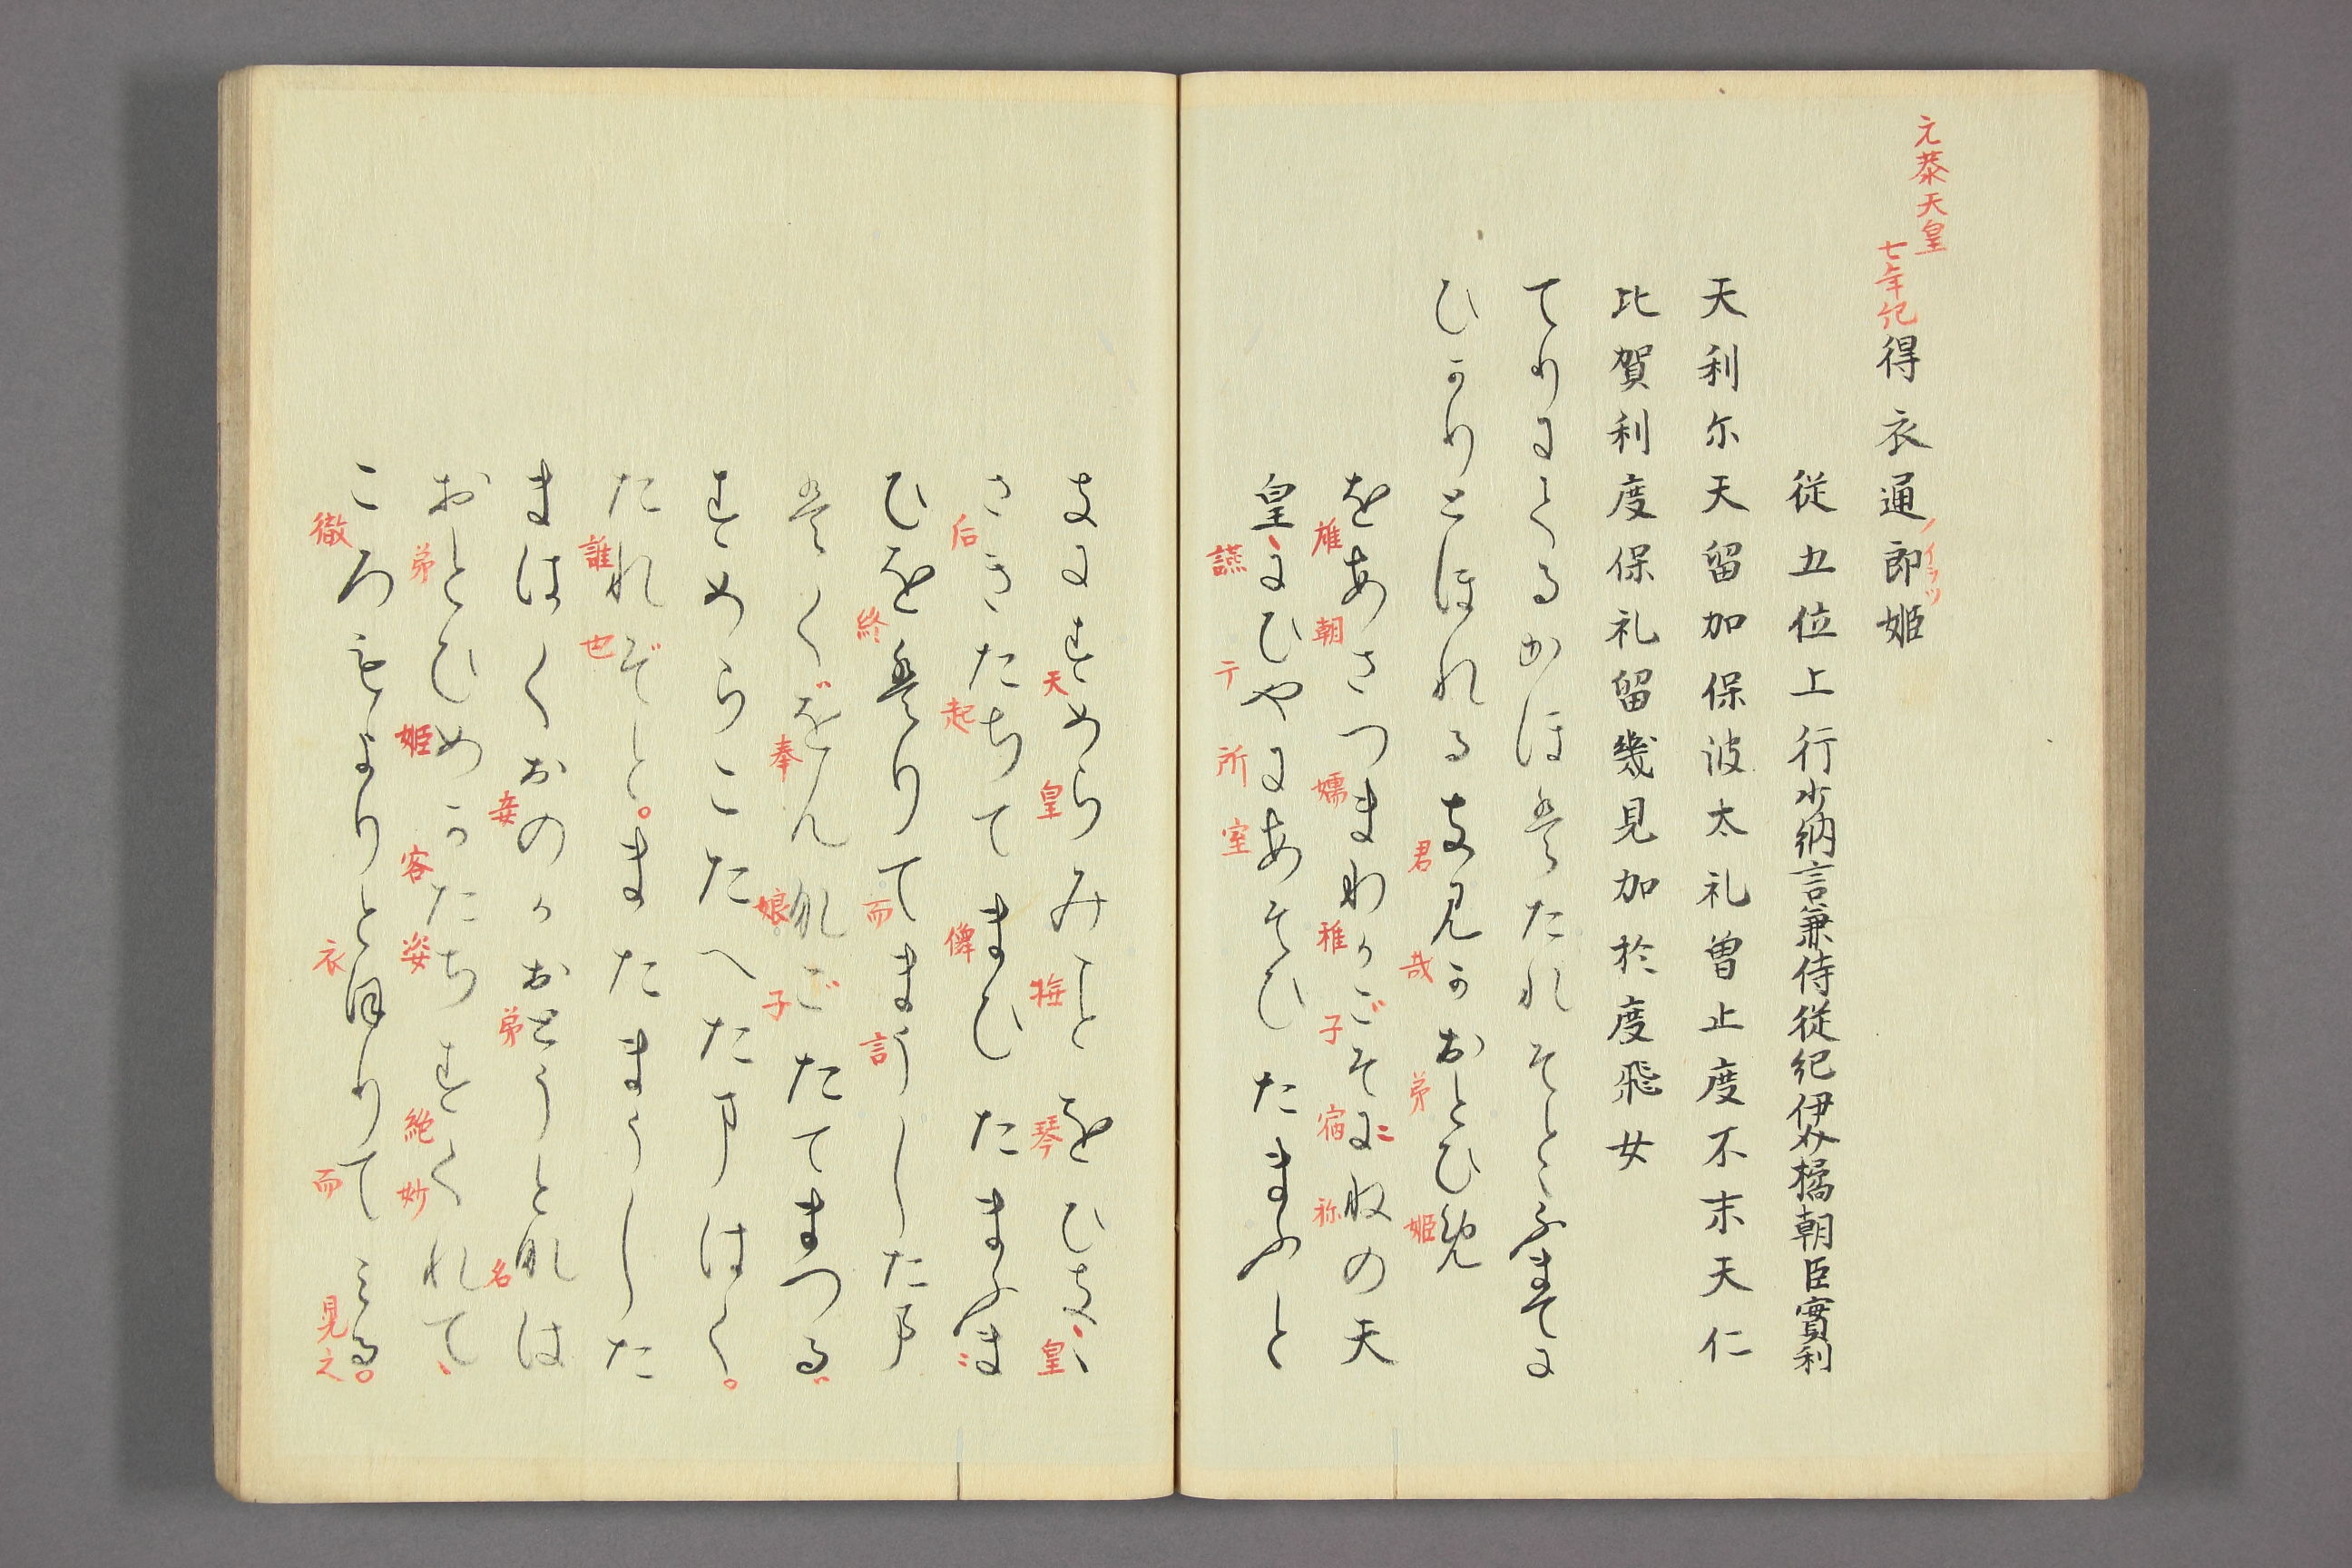 元恭天皇
七年紀
得衣通郎姫
ノイラツ
従五位上行少納言兼侍従紀伊介橘朝臣實利
天利尓天留加保波太礼曽止度不末天仁
比賀利度保礼留幾見加於度飛女
てりにてるかほはたれそとゝふまてに
ひかりとほれるきみかおとひめ
君 哉 弟 姫
をあさつまわくごすくねの天
雄 朝 嬬 稚 子 宿 祢
皇にひやにあそひたまふと
讌 于 所 室
きにすめらみことをひき
天 皇 撫 琴 皇
さきたちてまひたまふま
后 起 儛
ひをはりてまうしたま
終 而 言
はくをんなごたてまつる
奉 娘 子
すめらこたへたまはく
たれぞとまたまうした
誰 也
まはくおのかおとうとなは
妾 弟 名
おとひめかたちすくれて
弟 姫 容 姿 絶 妙
ころもよりとほりてみる
徹 衣 而 晃 之